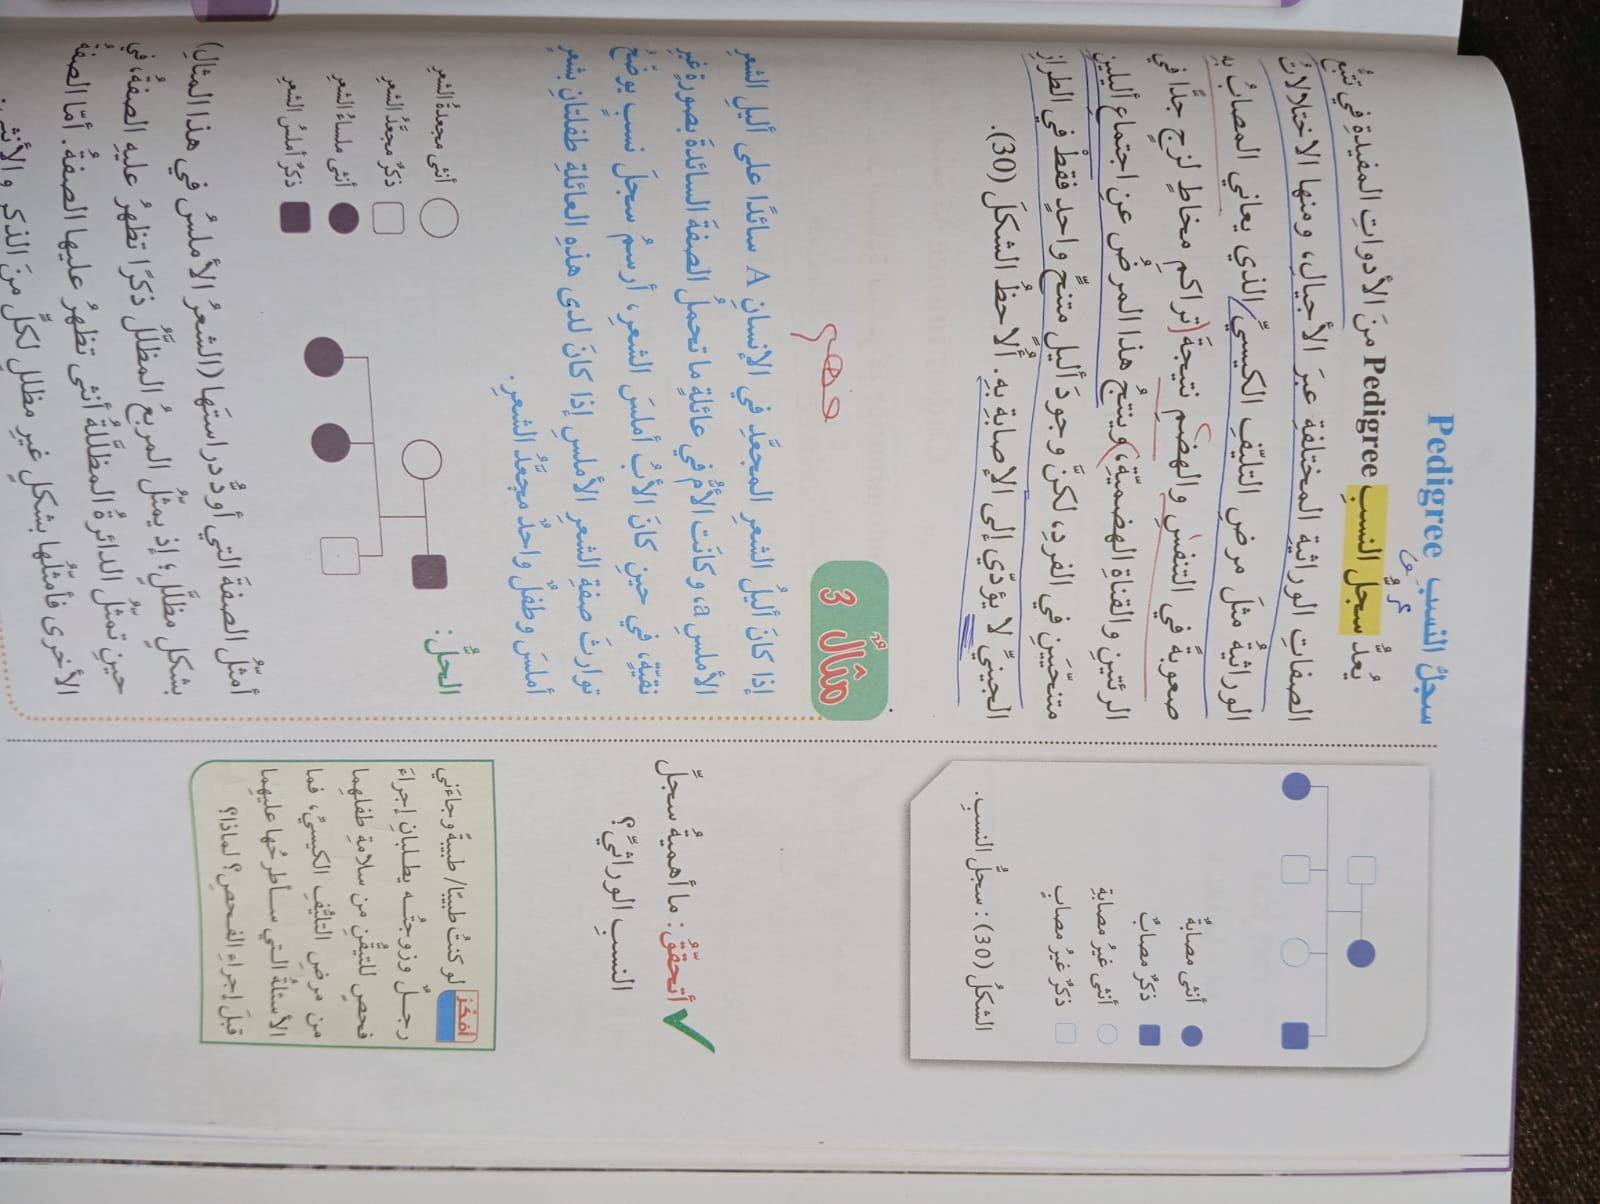 سجلُّ النسبِ Pedigree
يُعدُّ سجلُّ النسبِ Pedigree منَ الأدواتِ المفيدةِ في تتبُّعِ
الصفاتِ الوراثيةِ المختلفةِ عبرَ الأجيالِ، ومنها الاختلالاتُ
الوراثيةُ مثلَ مرضِ التليّفِ الكيسيِّ الذي يعاني المصابُ بهِ
صعوبةً في التنفسِ والهضمِ نتيجةَ (تراكمِ مخاطٍ لزجٍ جدًّا في
الرئتينِ والقناةِ الهضميّةِ)، وينتجُ هذا المرضُ عن اجتماعِ أليلينِ
متنحّيَينِ في الفردِ، لكنَّ وجودَ أليلٍ متنحٍّ واحدٍ فقطْ في الطرازِ
الجينيِّ لا يؤدّي إلى الإصابةِ بهِ. أُلاحظُ الشكلَ (30).
مثالٌ 3
مهم
إذا كانَ أليلُ الشعرِ المجعَّدِ في الإنسانِ A سائدًا على أليلِ الشعرِ
الأملسِ a، وكانَت الأمُّ في عائلةٍ ما تحملُ الصفةَ السائدةَ بصورةٍ غيرِ
نقيّةٍ، في حينِ كانَ الأبُ أملسَ الشعرِ، أرسمُ سجلَّ نسبٍ يوضّحُ
توارثَ صفةِ الشعرِ الأملسِ إذا كانَ لدى هذهِ العائلةِ طفلتانِ بشعرٍ
أملسَ وطفلٌ واحدٌ مجعَّدُ الشعرِ.
الحلُّ:
أنثى مجعدةُ الشعرِ
ذكرٌ مجعَّدُ الشعرِ
أنثى ملساءُ الشعرِ
ذكرٌ أملسُ الشعرِ
أمثّلُ الصفةَ التي أودُّ دراستَها (الشعرُ الأملسُ في هذا المثالِ)
بشكلٍ مظلّلٍ؛ إذ يمثّلُ المربعُ المظلّلُ ذكرًا تظهرُ عليهِ الصفةُ، في
حينِ تمثّلُ الدائرةُ المظلّلةُ أنثى تظهرُ عليها الصفةُ. أمّا الصفةُ
الأخرى فأمثّلُها بشكلٍ غيرِ مظللٍ لكلٍّ منَ الذكرِ والأنثى.
أنثى مصابةٌ
ذكرٌ مصابٌ
أنثى غيرُ مصابةٍ
ذكرٌ غيرُ مصابٍ
الشكلُ (30): سجلُّ النسبِ.
أتحقّقُ: ما أهميةُ سجلِّ
النسبِ الوراثيِّ؟
أفكّرُ لو كنتُ طبيبًا/ طبيبةً وجاءَني
رجلٌ وزوجتُه يطلبانِ إجراءَ
فحصٍ للتيقُّنِ من سلامةِ طفلِهما
من مرضِ التليّفِ الكيسيِّ، فما
الأسئلةُ التي سأطرحُها عليهِما
قبلَ إجراءِ الفحصِ؟ لماذا؟